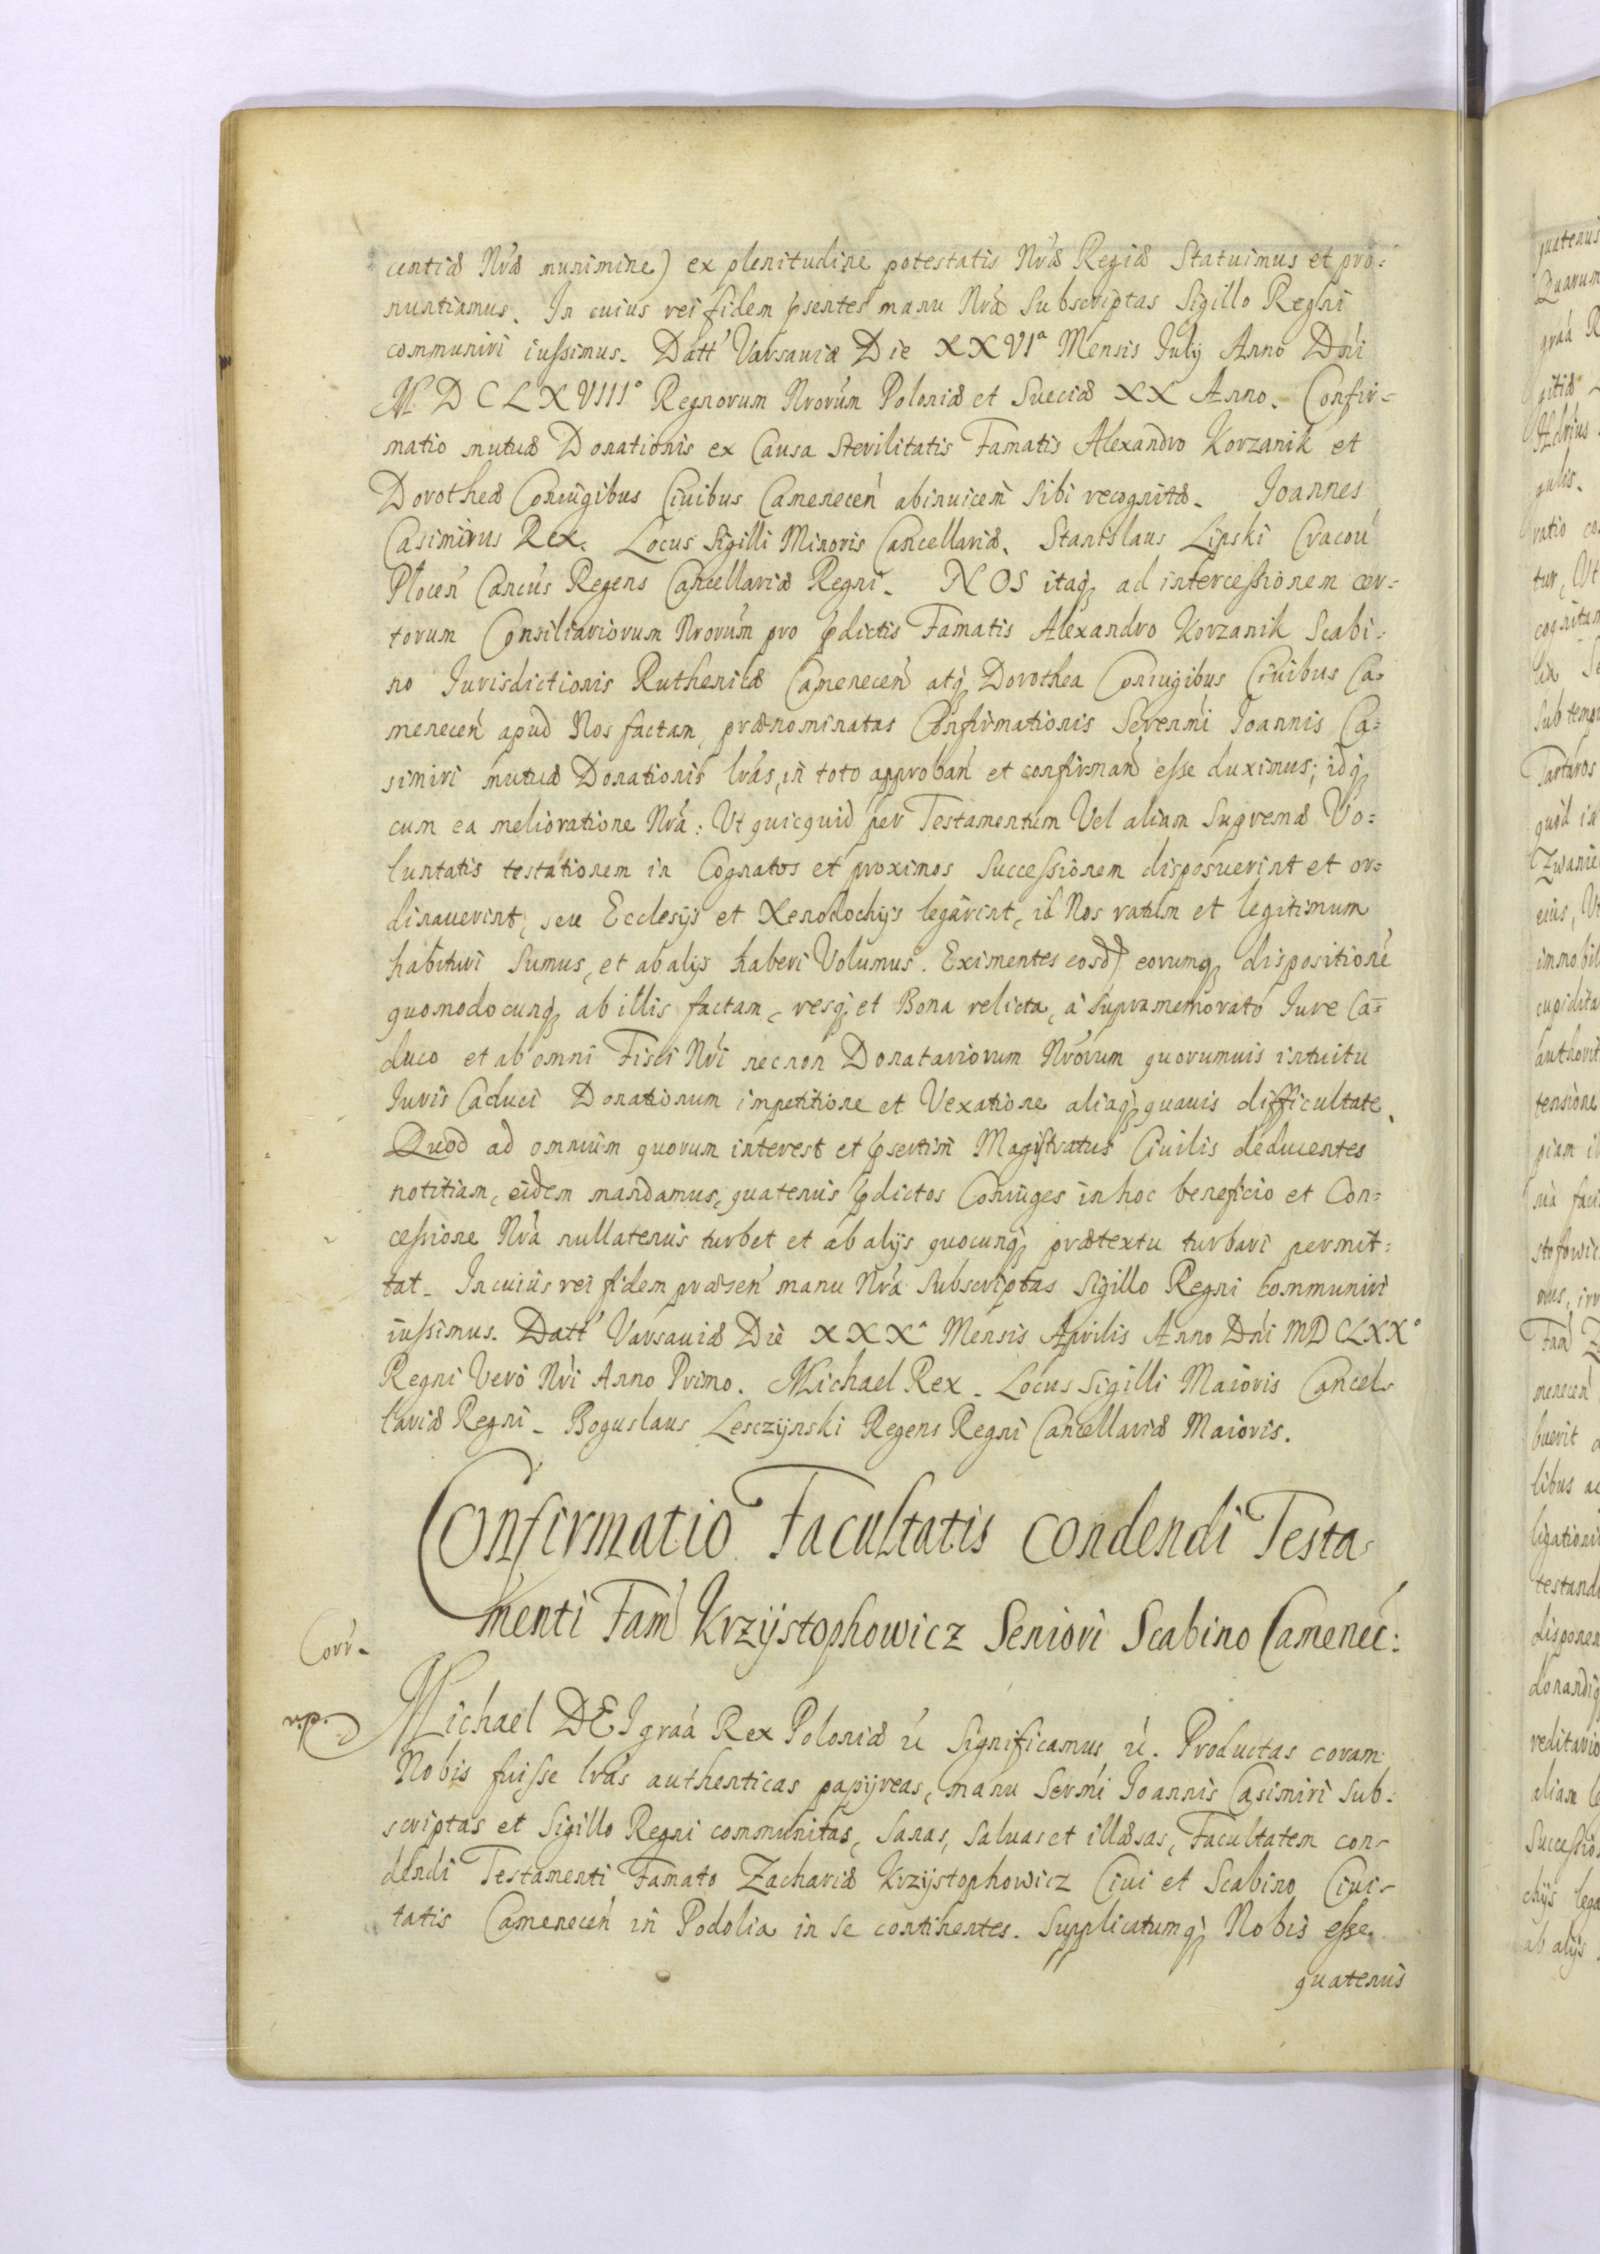 centiæ Nræ munimine) ex plenitudine potestatis Nræ Regiæ Statuimus et pro-
nuntiamus. In cuius rei fidem psentes manu Nrá Subscriptas Sigillo Regni
communiri iussimus. Datt Varsaviæ Die XXVIa Mensis July Anno Dni
MDCLXVIIIo Regnorum Nrorum Poloniæ et Sueciæ XX Anno. Confir-
matio mutuæ Donationis ex Causa sterilitatis Famatis Alexandro Korzanik et
Dorotheæ Coniugibus Civibus Camenecen abinuicem sibi recognitæ. Joannes
Casimirus Rex. Locus Sigilli Minoris Cancellariæ. Stanislaus Lipski Cracou
Plocen Cancus Regens Cancellariæ Regni. NOS itaq ad intercessionem cer-
torum Consiliariorum Nrorum pro pdictis Famatis Alexandro Korzanik Scabi-
no Jurisdictionis Ruthenicæ Camenecen atq Dorothea Coniugibus Civibus Ca-
menecen apud Nos factam, prænominatas Confirmationis Serenmi Joannis Ca-
simiri mutuæ Donationis lras, in toto approban et confirmand esse duximus; idq
cum ea melioratione Nra: Ut quicquid per Testamentum Vel aliam Supremæ Vo-
luntatis testationem in Cognatos et proximos Successionem disposuerint et or-
dinauerint, seu Ecclesijs et Xenodochijs legarint, id Nos ratum et legitimum
habituri Sumus, et ab alijs haberi Volumus. Eximentes eosd eorumq dispositione
quomodocunq ab illis factam, resq et Bona relicta, à supramemorato Jure Ca-
duco et ab omni Fisci Nri necnon Donatariorum Nrorum quorumuis intuitu
Juris Caduci Donationum impetitione et Vexatione aliaq quauis difficultate.
Quod ad omnium quorum interest et psertim Magistratus Ciuilis deducentes
notitiam, eidem mandamus, quatenus pdictos Coniuges in hoc beneficio et Con-
cessione Nrá nullatenus turbet et ab alijs quocunq prætextu turbari permit-
tat. In cuius rei fidem præsen manu Nrá subscriptas Sigillo Regni communiri
iussimus. Datt Varsauiæ Die XXXa Mensis Aprilis Anno Dni MDCLXXo
Regni Vero Nri Anno Primo. Michael Rex. Locus Sigilli Maioris Cancel-
lariæ Regni. Boguslaus Lesczynski Regens Regni Cancellariæ Maioris.
Confirmatio Facultatis condendi Testa-
menti Fam Krzystophowicz Seniori Scabino Camenec:
Corr.
Michael DEI graá Rex Poloniæ &c Significamus &c. Productas coram
Nobis fuisse lras authenticas papyreas, manu Sermi Joannis Casimiri Sub-
scriptas et Sigillo Regni communitas, Sanas, Saluas et illæsas, Facultatem con-
dendi Testamenti Famato Zachariæ Krzystophowicz Ciui et Scabino Ciui-
tatis Camenecen in Podolia in se continentes. Supplicatumq Nobis esse
quatenus